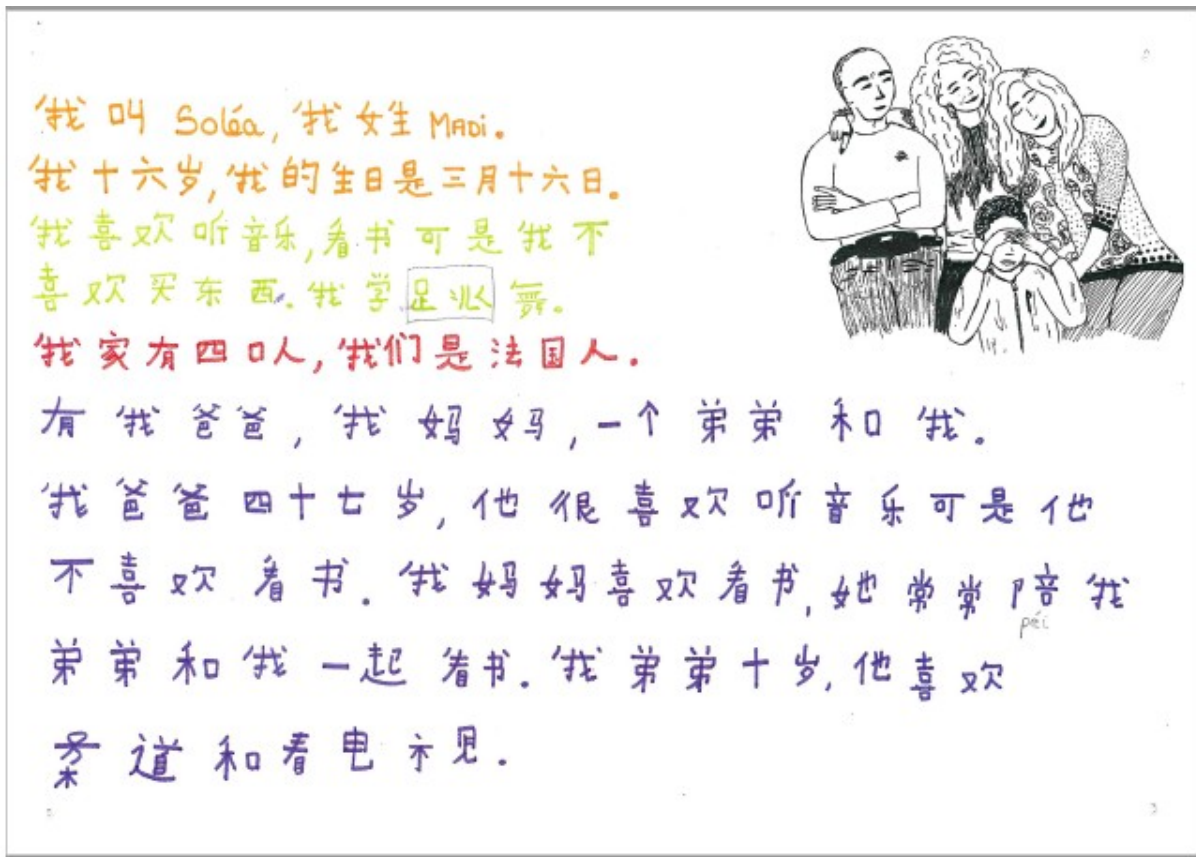 我叫 Soléa, 我女生 MADi.
我十六岁, 我的生日是三月十六日.
我喜欢听音乐, 看书可是我不
喜欢买东西. 我学足兆舞.
我家有四口人, 我们是法国人.
有我爸爸, 我妈妈, 一个弟弟和我.
我爸爸四十七岁, 他很喜欢听音乐可是他
不喜欢看书. 我妈妈喜欢看书, 她常常陪我
péi
弟弟和我一起看书. 我弟弟十岁, 他喜欢
柔道和看电视.